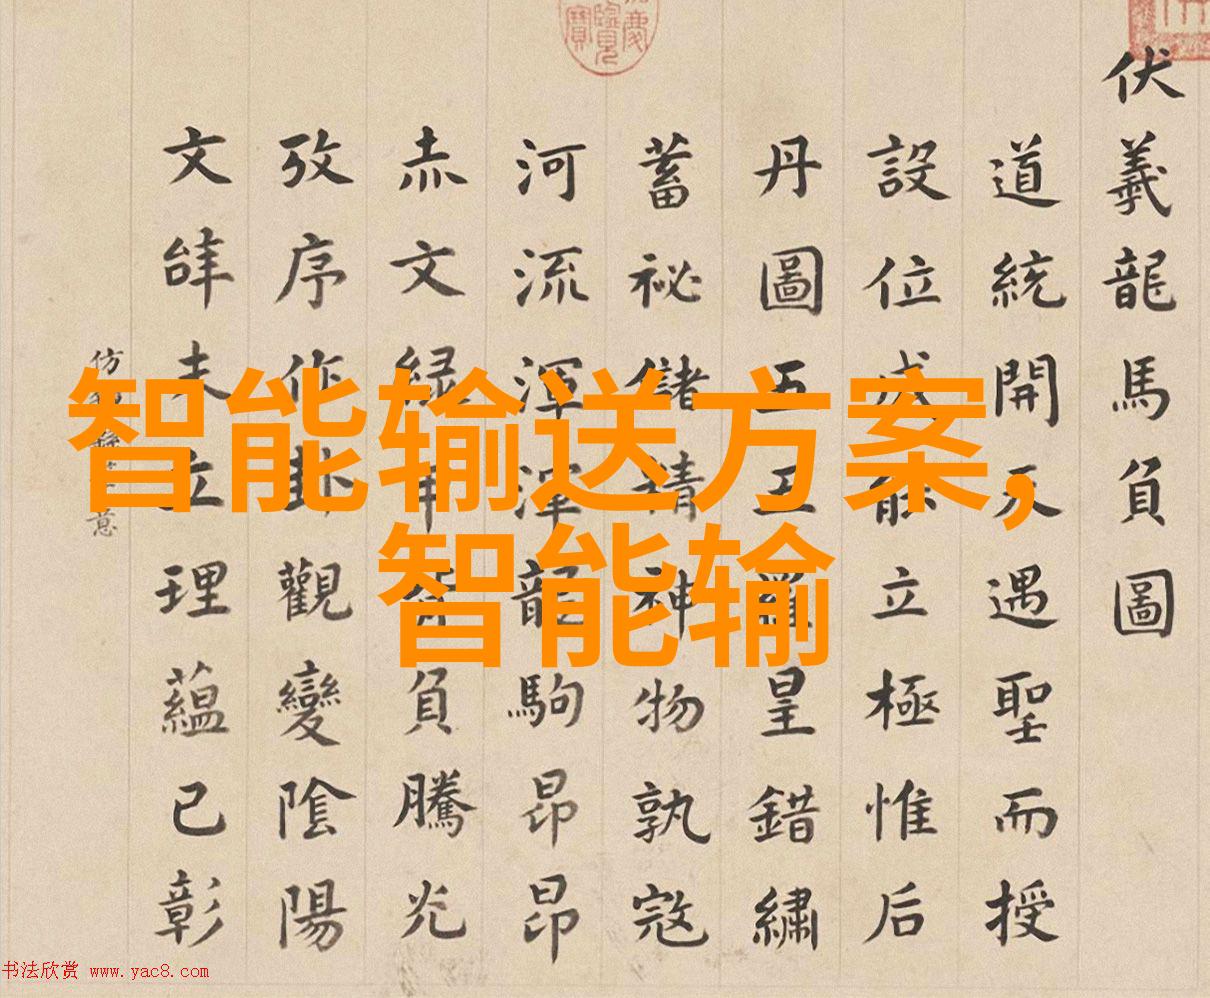 伏羲龍馬負圖
道統開天遇聖而授
設位成能立極惟后
丹圖五羅皇錯繡
蓄祕儲精神物孰
河流渾渾龍駒昂昂
赤文綠甲負騰光
攷序作卦觀變陰陽
文辭未立理蘊已彰
仿意
智能输送方案,
智能输
书法欣赏 www.yac8.com